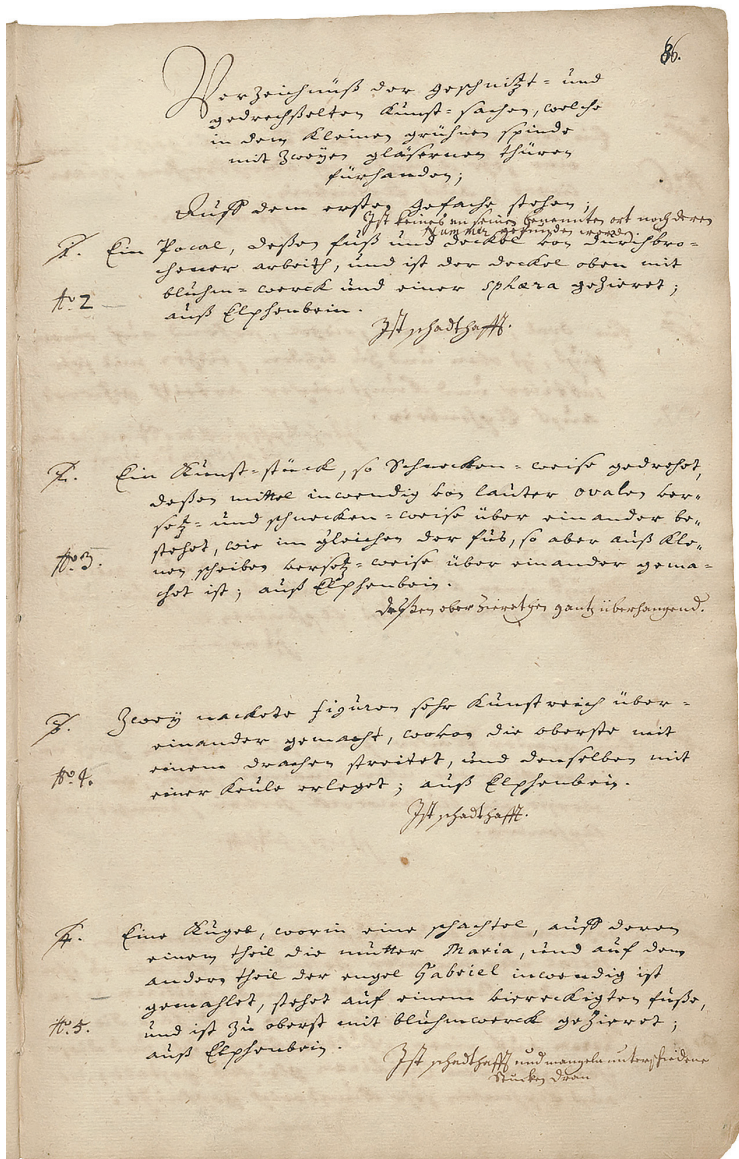 86.
Verzeichnüß der geschnitzt- und
gedrechßelten Kunst-sachen, welche
in dem kleinen grühnen spinde
mit zweyen gläsernen thüren
fürhanden;
Auff dem ersten gefache stehen;
Ist keines an seinen benennten ort noch deren
Nummer gefunden worden.
1. Ein Pocal, deßen fuß und deckel von durchbro-
chener arbeith, und ist der deckel oben mit
bluhm-werck und einer sphæra gezieret;
No 2 auß Elphenbein.
Ist schadthafft.
2. Ein Kunst-stück, so Schnecken-weise gedrehet,
deßen mittel inwendig von lauter ovalen ver-
setz- und schnecken-weise über einander be-
stehet, wie im gleichen der fus, so aber auß kle-
No 3. nen scheiben versetz-weise über einander gema-
chet ist; auß Elphenbein.
deßen ober Zierathen gantz überhangend.
3. Zwey nackete figuren sehr kunstreich über-
einander gemacht, wovon die oberste mit
einem drachen streitet, und denselben mit
No 4. einer keule erleget; auß Elphenbein.
Ist schadthafft.
4. Eine Kugel, worin eine schachtel, auff deren
einem theil die mutter Maria, und auf dem
andern theil der engel Gabriel inwendig ist
gemahlet, stehet auf einem viereckigten fuße,
No 5. und ist zu oberst mit bluhmwerck gezieret;
auß Elphenbein.
Ist schadthafft und mangeln unterschiedene
Stücken dran